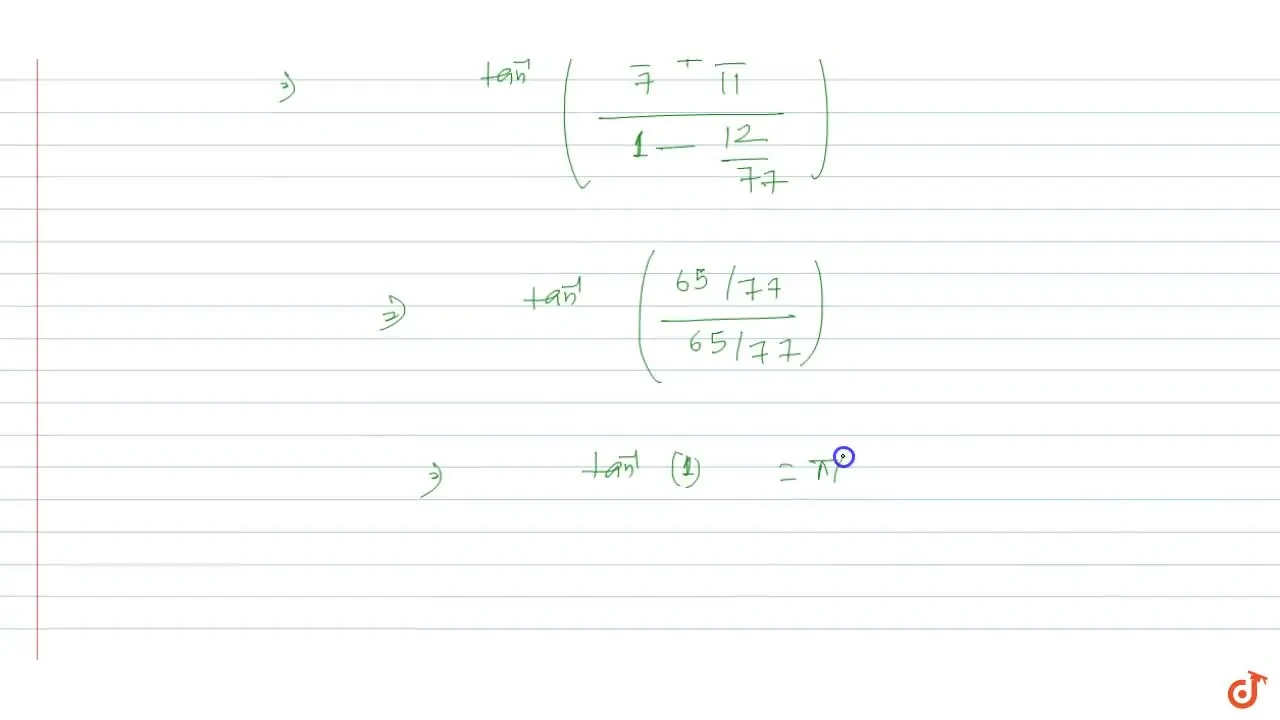 ⇒ tan⁻¹ ( 7 + 11
1 — 12/77 )
⇒ tan⁻¹ ( 65/77
65/77 )
⇒ tan⁻¹ (1) = π/